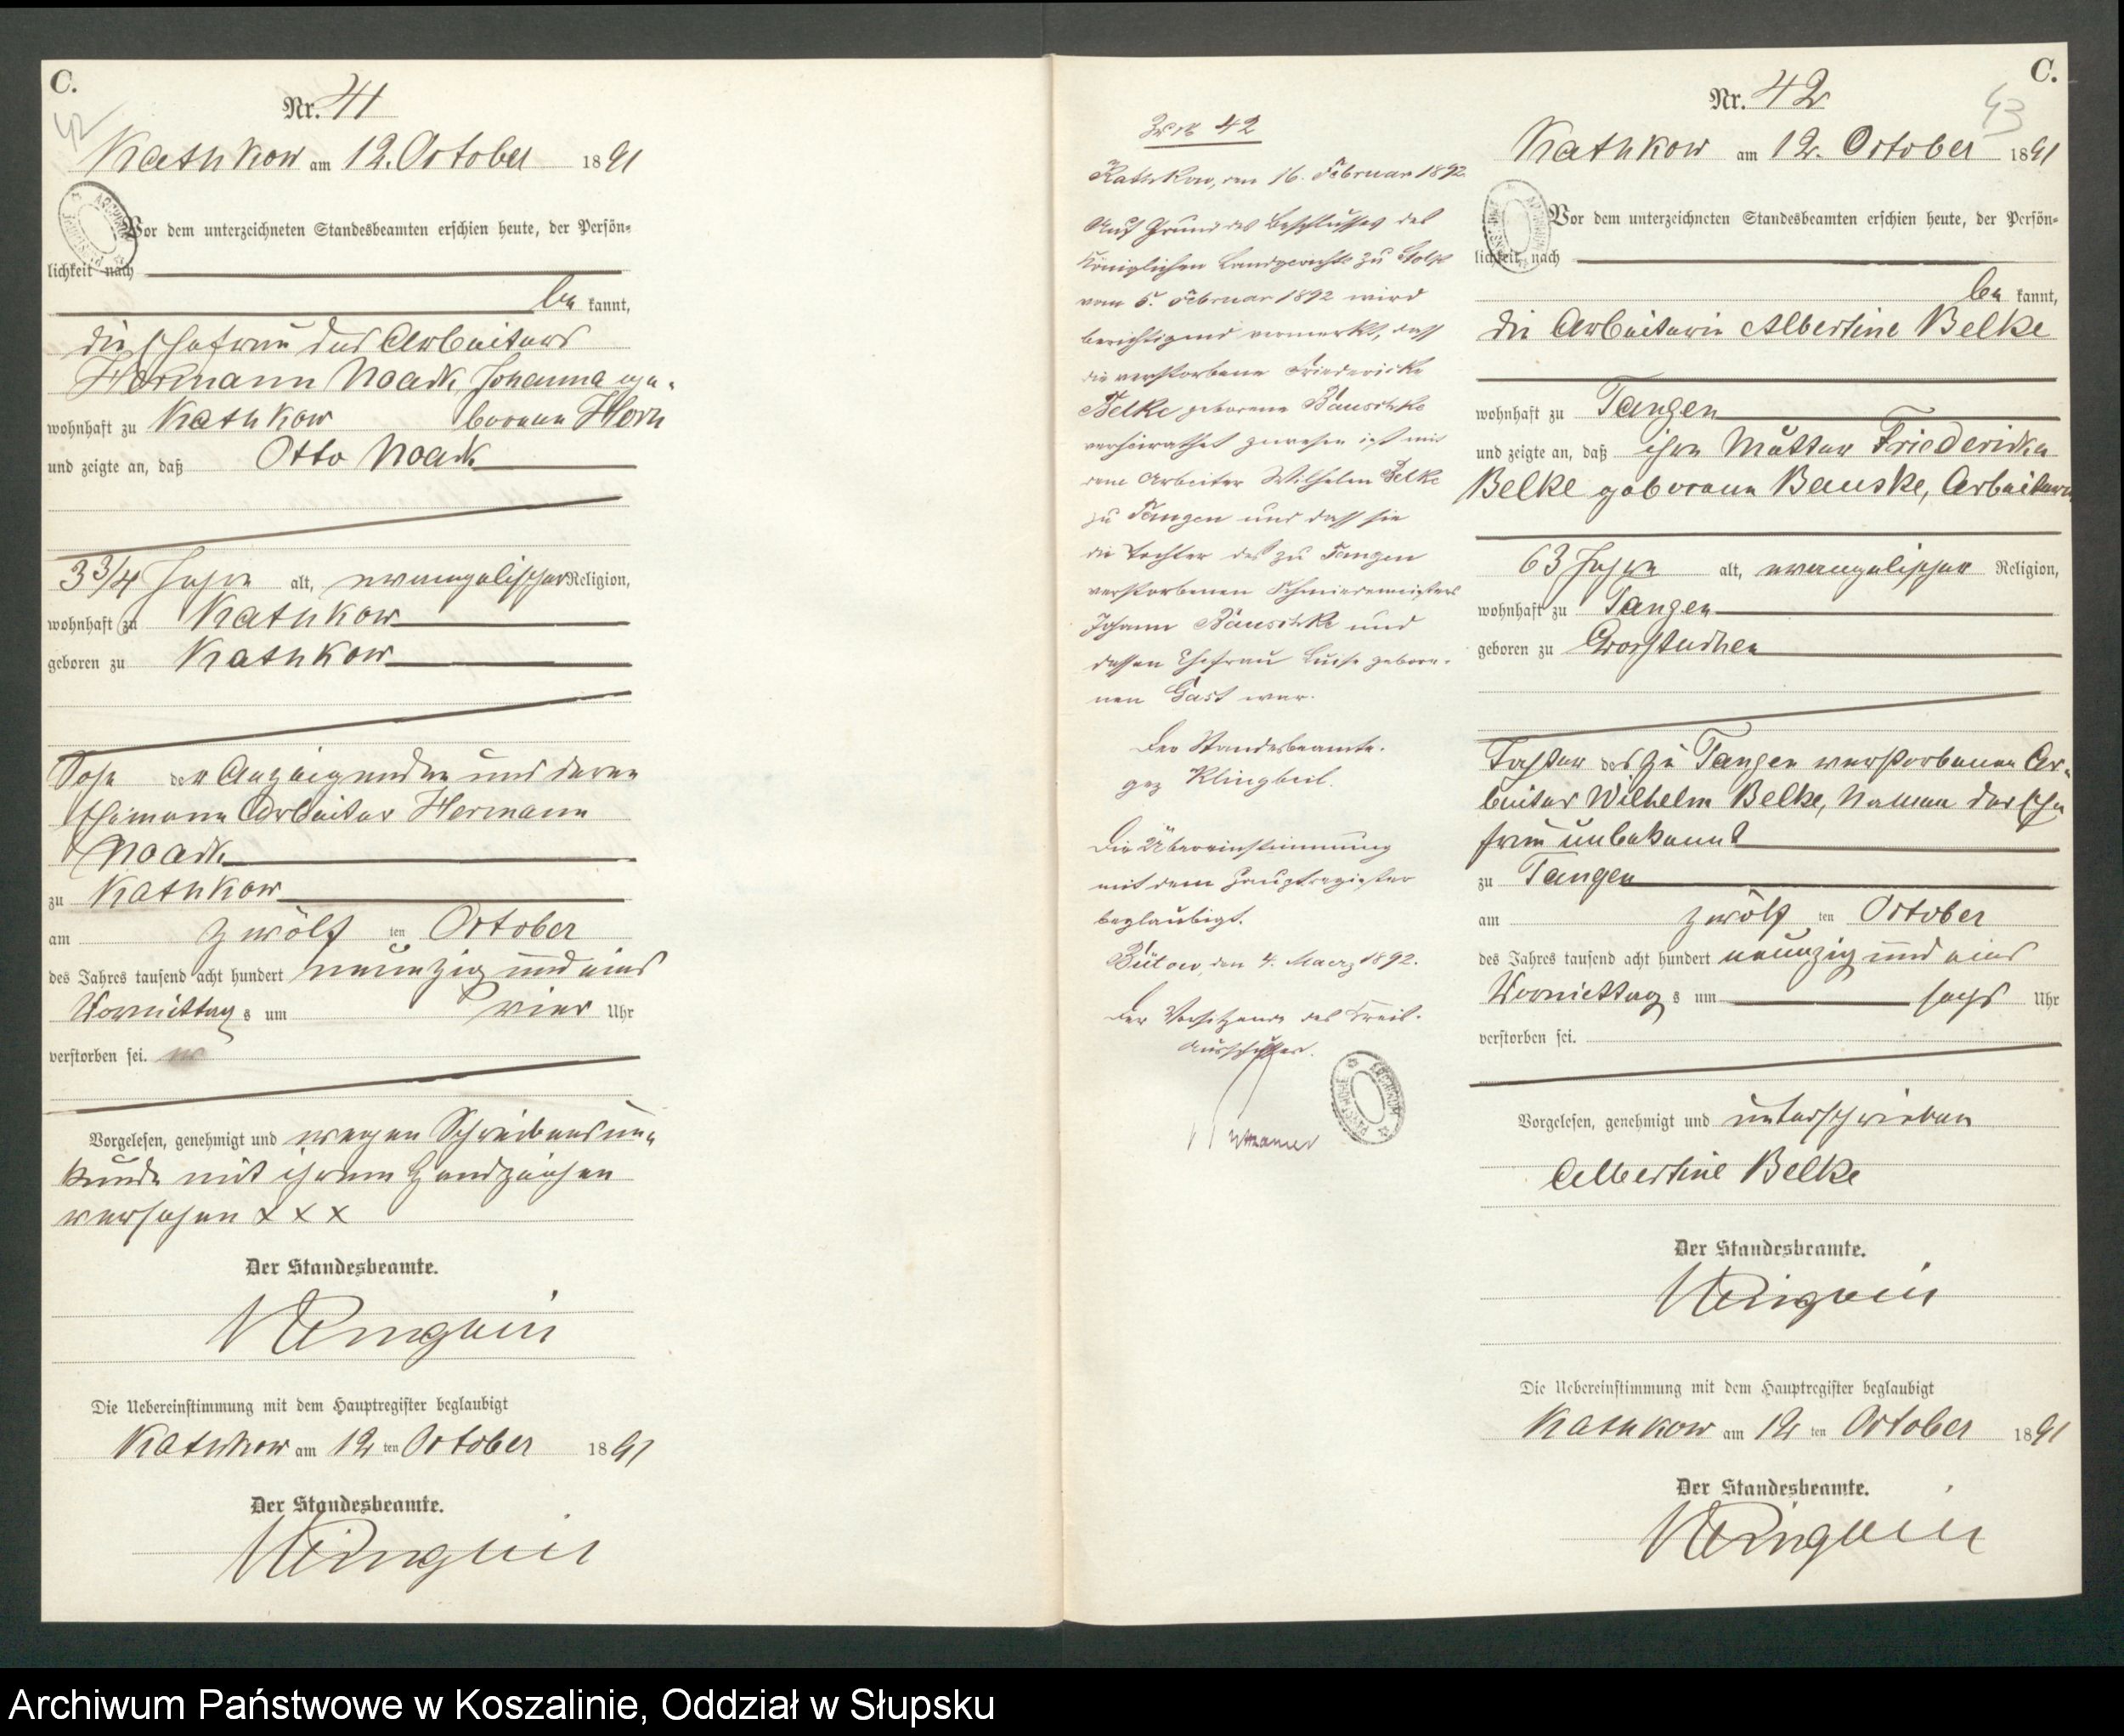 C.
Nr. 41
42
Kathkow am 12. October 1891
Vor dem unterzeichneten Standesbeamten erschien heute, der Persön-
lichkeit nach
be kannt,
die Ehefrau des Arbeiters
Hermann Noack, Johanna ge-
wohnhaft zu Kathkow borene Horn
und zeigte an, daß Otto Noack
3 3/4 Jahre alt, evangelischer Religion,
wohnhaft zu Kathkow
geboren zu Kathkow
Sohn der Anzeigenden und deren
Ehemann Arbeiter Hermann
Noack
zu Kathkow
am zwölf ten October
des Jahres tausend acht hundert neunzig und eins
Vormittag s um vier Uhr
verstorben sei.
Vorgelesen, genehmigt und wegen Schreibensun-
kunde mit ihrem Handzeichen
versehen x x x
Der Standesbeamte.
Klingbeil
Die Uebereinstimmung mit dem Hauptregister beglaubigt
Kathkow am 12 ten October 1891
Der Standesbeamte.
Klingbeil
42
Kathkow, den 16. Februar 1892.
Auf Grund des Beschlusses des
Königlichen Landgerichts zu Stolp
vom 5. Februar 1892 wird
berichtigend vermerkt, dass
die verstorbene Friedericke
Belke geborene Bäuschke
verheirathet gewesen ist mit
dem Arbeiter Wilhelm Belke
zu Tangen und dass sie
die Tochter des zu Tangen
verstorbenen Schmiedemeisters
Johann Bäuschke und
dessen Ehefrau Luise gebore-
nen Gast war.
Der Standesbeamte.
gez Klingbeil.
Die Übereinstimmung
mit dem Hauptregister
beglaubigt.
Bütow, den 4. Maerz 1892.
Der Vorsitzende des Kreis-
Ausschusses.
C.
Nr. 42
43
Kathkow am 12. October 1891
Vor dem unterzeichneten Standesbeamten erschien heute, der Persön-
lichkeit nach
be kannt,
die Arbeiterin Albertine Belke
wohnhaft zu Tangen
und zeigte an, daß ihre Mutter Friedericke
Belke geborene Bauske, Arbeiterin
63 Jahre alt, evangelischer Religion,
wohnhaft zu Tangen
geboren zu Grosstuchen
Tochter des zu Tangen verstorbenen Ar-
beiter Wilhelm Belke, Namen der Ehe
frau unbekannt
zu Tangen
am zwölf ten October
des Jahres tausend acht hundert neunzig und eins
Vormittag s um sechs Uhr
verstorben sei.
Vorgelesen, genehmigt und unterschrieben
Albertine Belke
Der Standesbeamte.
Klingbeil
Die Uebereinstimmung mit dem Hauptregister beglaubigt
Kathkow am 12 ten October 1891
Der Standesbeamte.
Klingbeil
Archiwum Państwowe w Koszalinie, Oddział w Słupsku